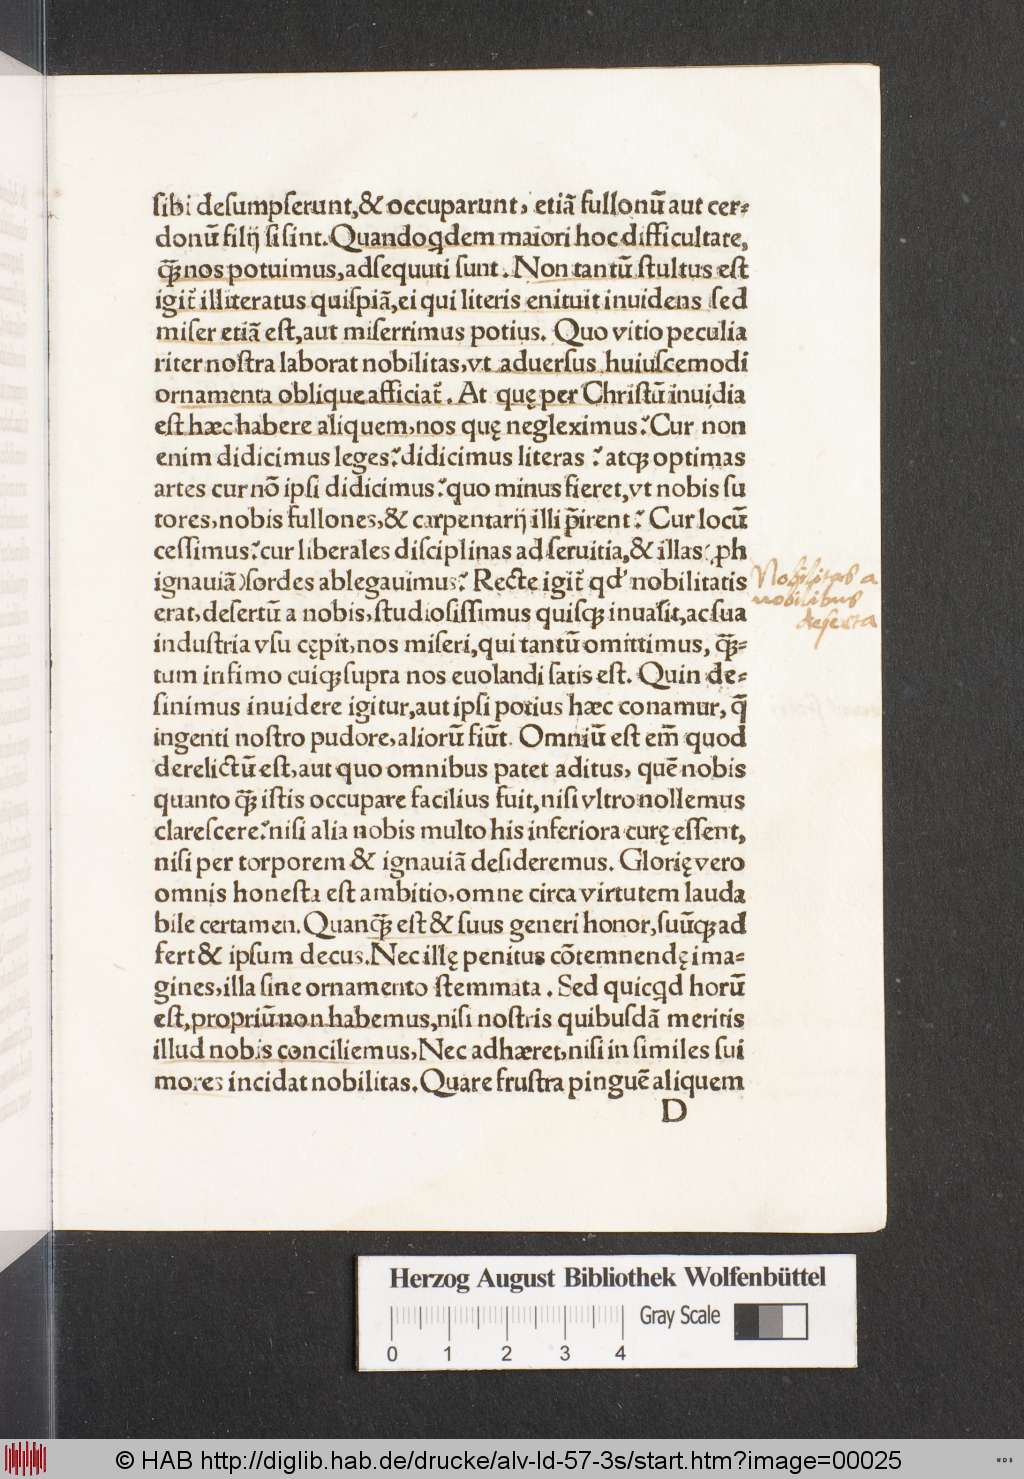 ſibi deſumpſerunt,& occuparunt, etiã fullonũ aut cer⸗
donũ filij ſi ſint. Quandoꝗdem maiori hoc difficultate,
ꝗ̃ nos potuimus, adſequuti ſunt. Non tantũ ſtultus eſt
igit̃ illiteratus quiſpiã, ei qui literis enituit inuidens ſed
miſer etiã eſt, aut miſerrimus potius. Quo vitio peculia
riter noſtra laborat nobilitas, vt aduerſus huiuſcemodi
ornamenta oblique afficiat̃. At quę per Chriſtũ inuidia
eſt hæc habere aliquem, nos quę negleximus? Cur non
enim didicimus leges? didicimus literas? atqꝫ optimas
artes cur nõ ipſi didicimus? quo minus fieret, vt nobis ſu
tores, nobis fullones, & carpentarij illi p̃irent? Cur locũ
ceſſimus? cur liberales diſciplinas ad ſeruitia, & illas (ꝓh
ignauiã) ſordes ablegauimus? Recte igit̃ qd' nobilitatis
erat, deſertũ a nobis, ſtudioſiſſimus quiſqꝫ inuaſit, ac ſua
induſtria vſu cępit, nos miſeri, qui tantũ omittimus, ꝗ̃⸗
tum infimo cuiqꝫ ſupra nos euolandi ſatis eſt. Quin de⸗
ſinimus inuidere igitur, aut ipſi potius hæc conamur, q̃
ingenti noſtro pudore, aliorũ fiũt. Omniũ eſt em̃ quod
derelictũ eſt, aut quo omnibus patet aditus, quẽ nobis
quanto ꝗ̃ iſtis occupare facilius fuit, niſi vltro nollemus
clareſcere? niſi alia nobis multo his inferiora curę eſſent,
niſi per torporem & ignauiã deſideremus. Glorię vero
omnis honeſta eſt ambitio, omne circa virtutem lauda
bile certamen. Quanꝗ̃ eſt & ſuus generi honor, ſuũqꝫ ad
fert & ipſum decus. Nec illę penitus cõtemnendę ima⸗
gines, illa ſine ornamento ſtemmata. Sed quicꝗd horũ
eſt, propriũ non habemus, niſi noſtris quibuſdã meritis
illud nobis conciliemus, Nec adhæret, niſi in ſimiles ſui
mores incidat nobilitas. Quare fruſtra pinguẽ aliquem
D
Nobilitas a
nobilibus
deserta
Herzog August Bibliothek Wolfenbüttel
Gray Scale
0 1 2 3 4
© HAB http://diglib.hab.de/drucke/alv-ld-57-3s/start.htm?image=00025